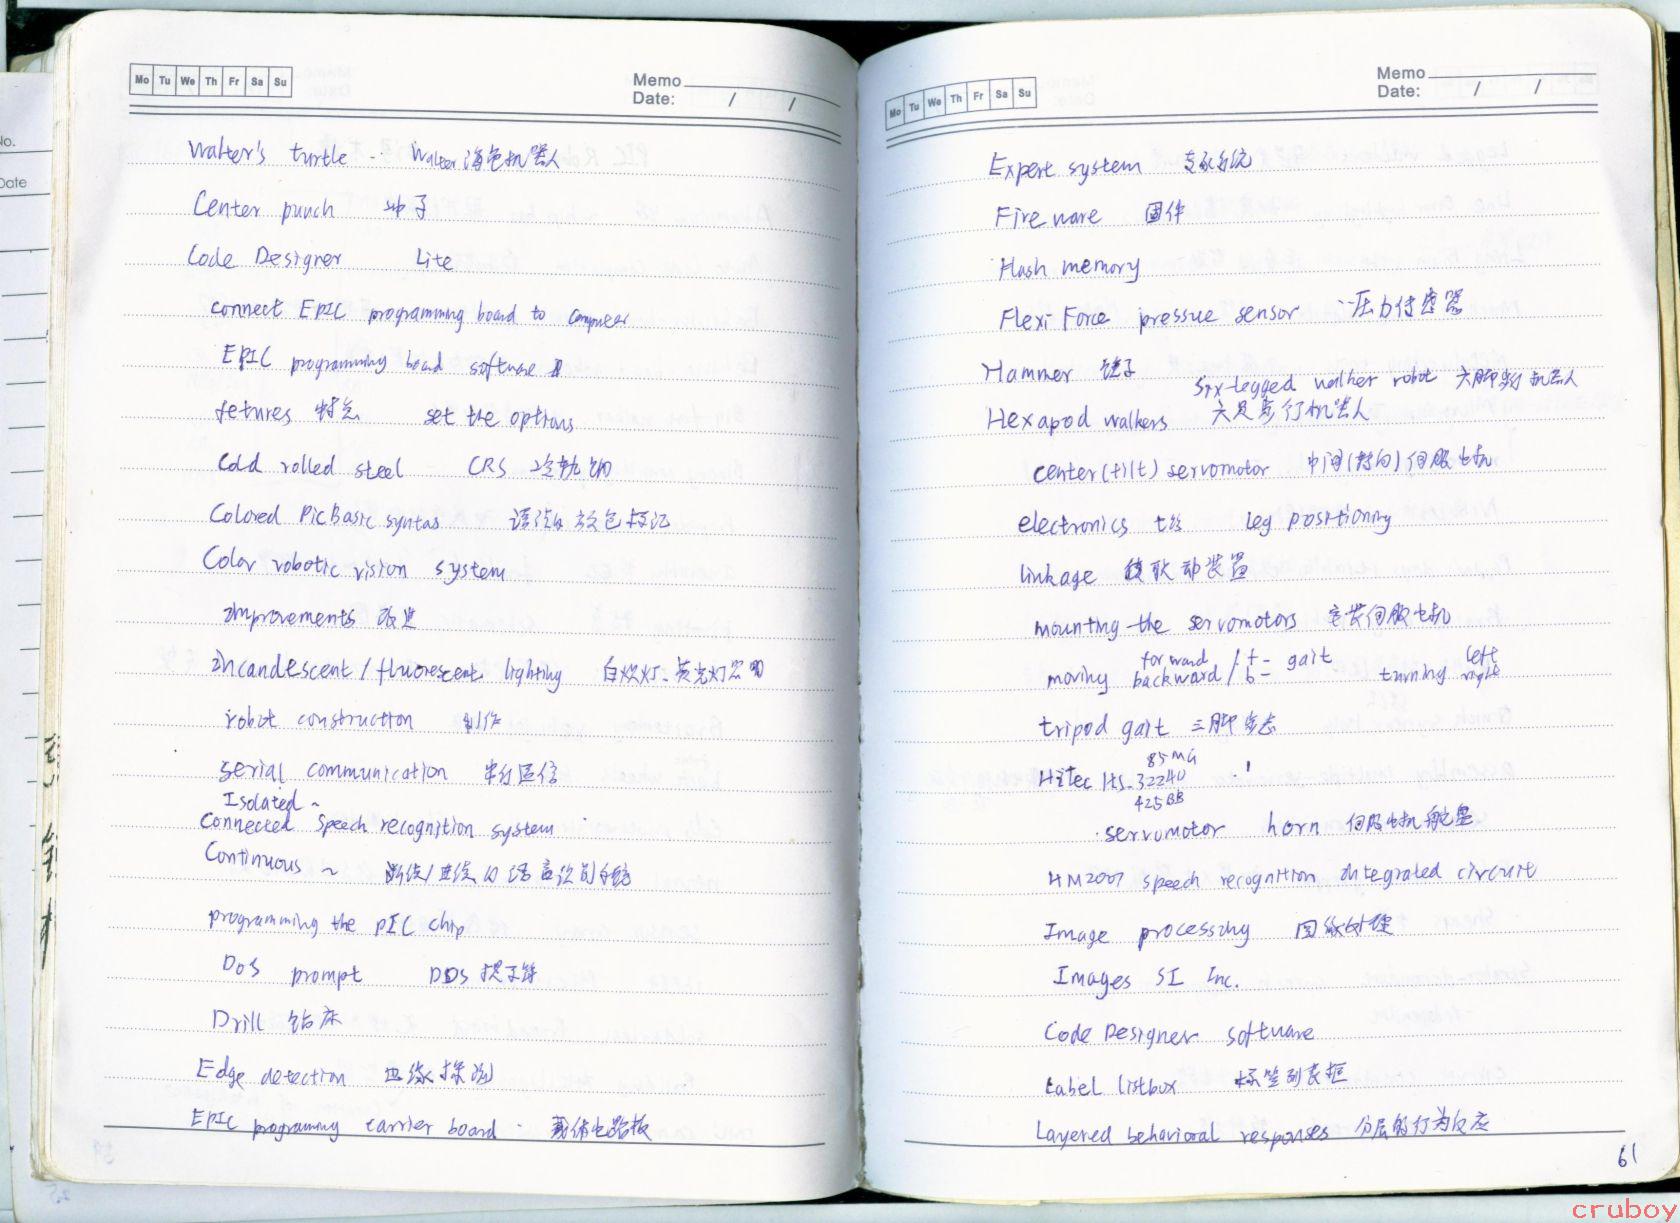 Mo Tu We Th Fr Sa Su
Memo
Date: / /
Walter's turtle - Walter海龟机器人
Center punch 冲子
Code Designer Lite
connect EPIC programming board to computer
EPIC programming board software
fetures 特点 set the options
Cold rolled steel CRS 冷轧钢
Colored PicBasic syntas 语法的 颜色标记
Color robotic vision system
improvements 改进
incandescent / fluorescent lighting 白炽灯、荧光灯照明
robot construction 制作
serial communication 串行通信
Isolated ~
Connected speech recognition system
Continuous ~ 断续/连续的语音识别系统
programming the PIC chip
DOS prompt DOS 提示符
Drill 钻床
Edge detection 边缘探测
EPIC programming carrier board 载体电路板
No.
Date
Mo Tu We Th Fr Sa Su
Memo
Date: / /
Expert system 专家系统
Fireware 固件
Flash memory
Flexi Force pressue sensor 压力传感器
Hammer 锤子
Six-legged walker robot 六脚步行机器人
Hexapod walkers 六足步行机器人
center(tilt) servomotor 中间(转向)伺服电机
electronics leg positioning
linkage 联动装置
mounting the servomotors 安装伺服电机
forward / f- gait left
moving backward / b- turning right
tripod gait 三脚步态
85MG
Hitec HS-322HD
425BB
servomotor horn 伺服电机舵盘
HM2007 speech recognition integrated circuit
Image processing 图像处理
Images SI Inc.
Code Designer software
Label listbox 标签列表框
Layered behavioral responses 分层的行为反应
61
cruboy